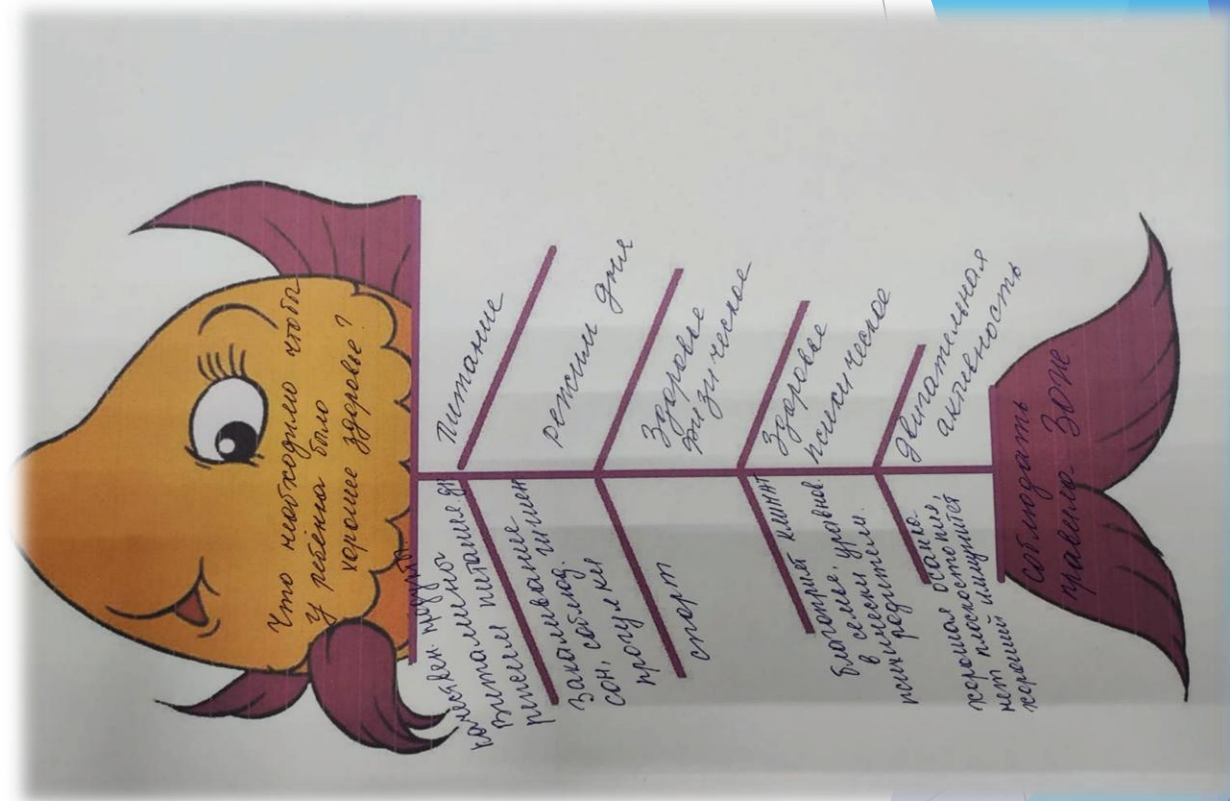 Что необходимо чтобы
у ребёнка было
хорошее здоровье?
Питание
режим дня
Здоровье
физическое
Здоровье
психическое
двигательная
активность
качествен. продукты
витаминно
режим питание
Закаливание
сон, соблюд. гигиен
прогулки
спорт
благоприят климат
в семье, уравнов.
родителей.
хорошая осанка
нет плоскостопия,
хороший иммунитет
соблюдать
правила ЗОЖ